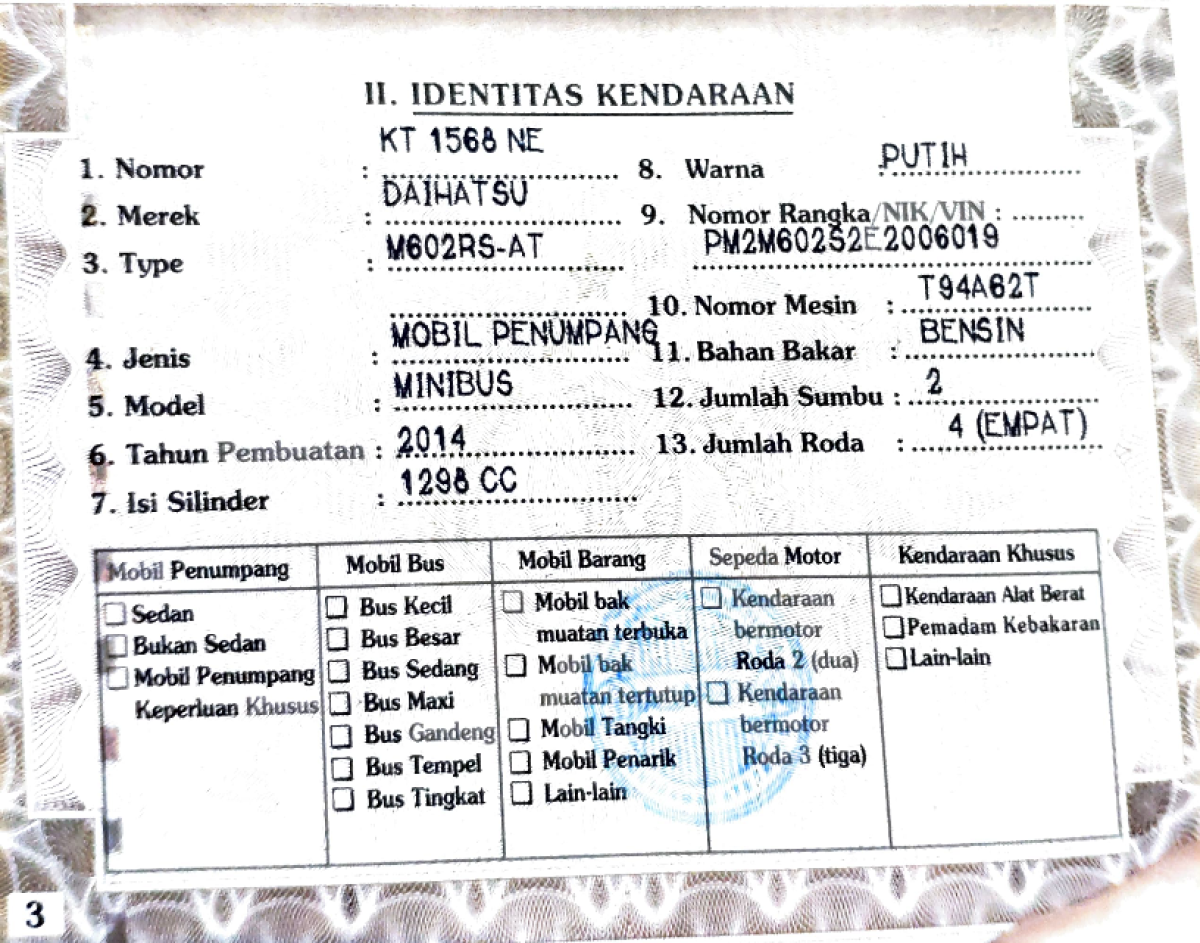 II. IDENTITAS KENDARAAN
1. Nomor : KT 1568 NE
2. Merek : DAIHATSU
3. Type : M602RS-AT
4. Jenis : MOBIL PENUMPANG
5. Model : MINIBUS
6. Tahun Pembuatan : 2014
7. Isi Silinder : 1298 CC
8. Warna PUTIH
9. Nomor Rangka/NIK/VIN :
PM2M602S2E2006019
10. Nomor Mesin : T94A62T
11. Bahan Bakar : BENSIN
12. Jumlah Sumbu : 2
13. Jumlah Roda : 4 (EMPAT)
Mobil Penumpang
Sedan
Bukan Sedan
Mobil Penumpang
Keperluan Khusus
Mobil Bus
Bus Kecil
Bus Besar
Bus Sedang
Bus Maxi
Bus Gandeng
Bus Tempel
Bus Tingkat
Mobil Barang
Mobil bak
muatan terbuka
Mobil bak
muatan tertutup
Mobil Tangki
Mobil Penarik
Lain-lain
Sepeda Motor
Kendaraan
bermotor
Roda 2 (dua)
Kendaraan
bermotor
Roda 3 (tiga)
Kendaraan Khusus
Kendaraan Alat Berat
Pemadam Kebakaran
Lain-lain
3